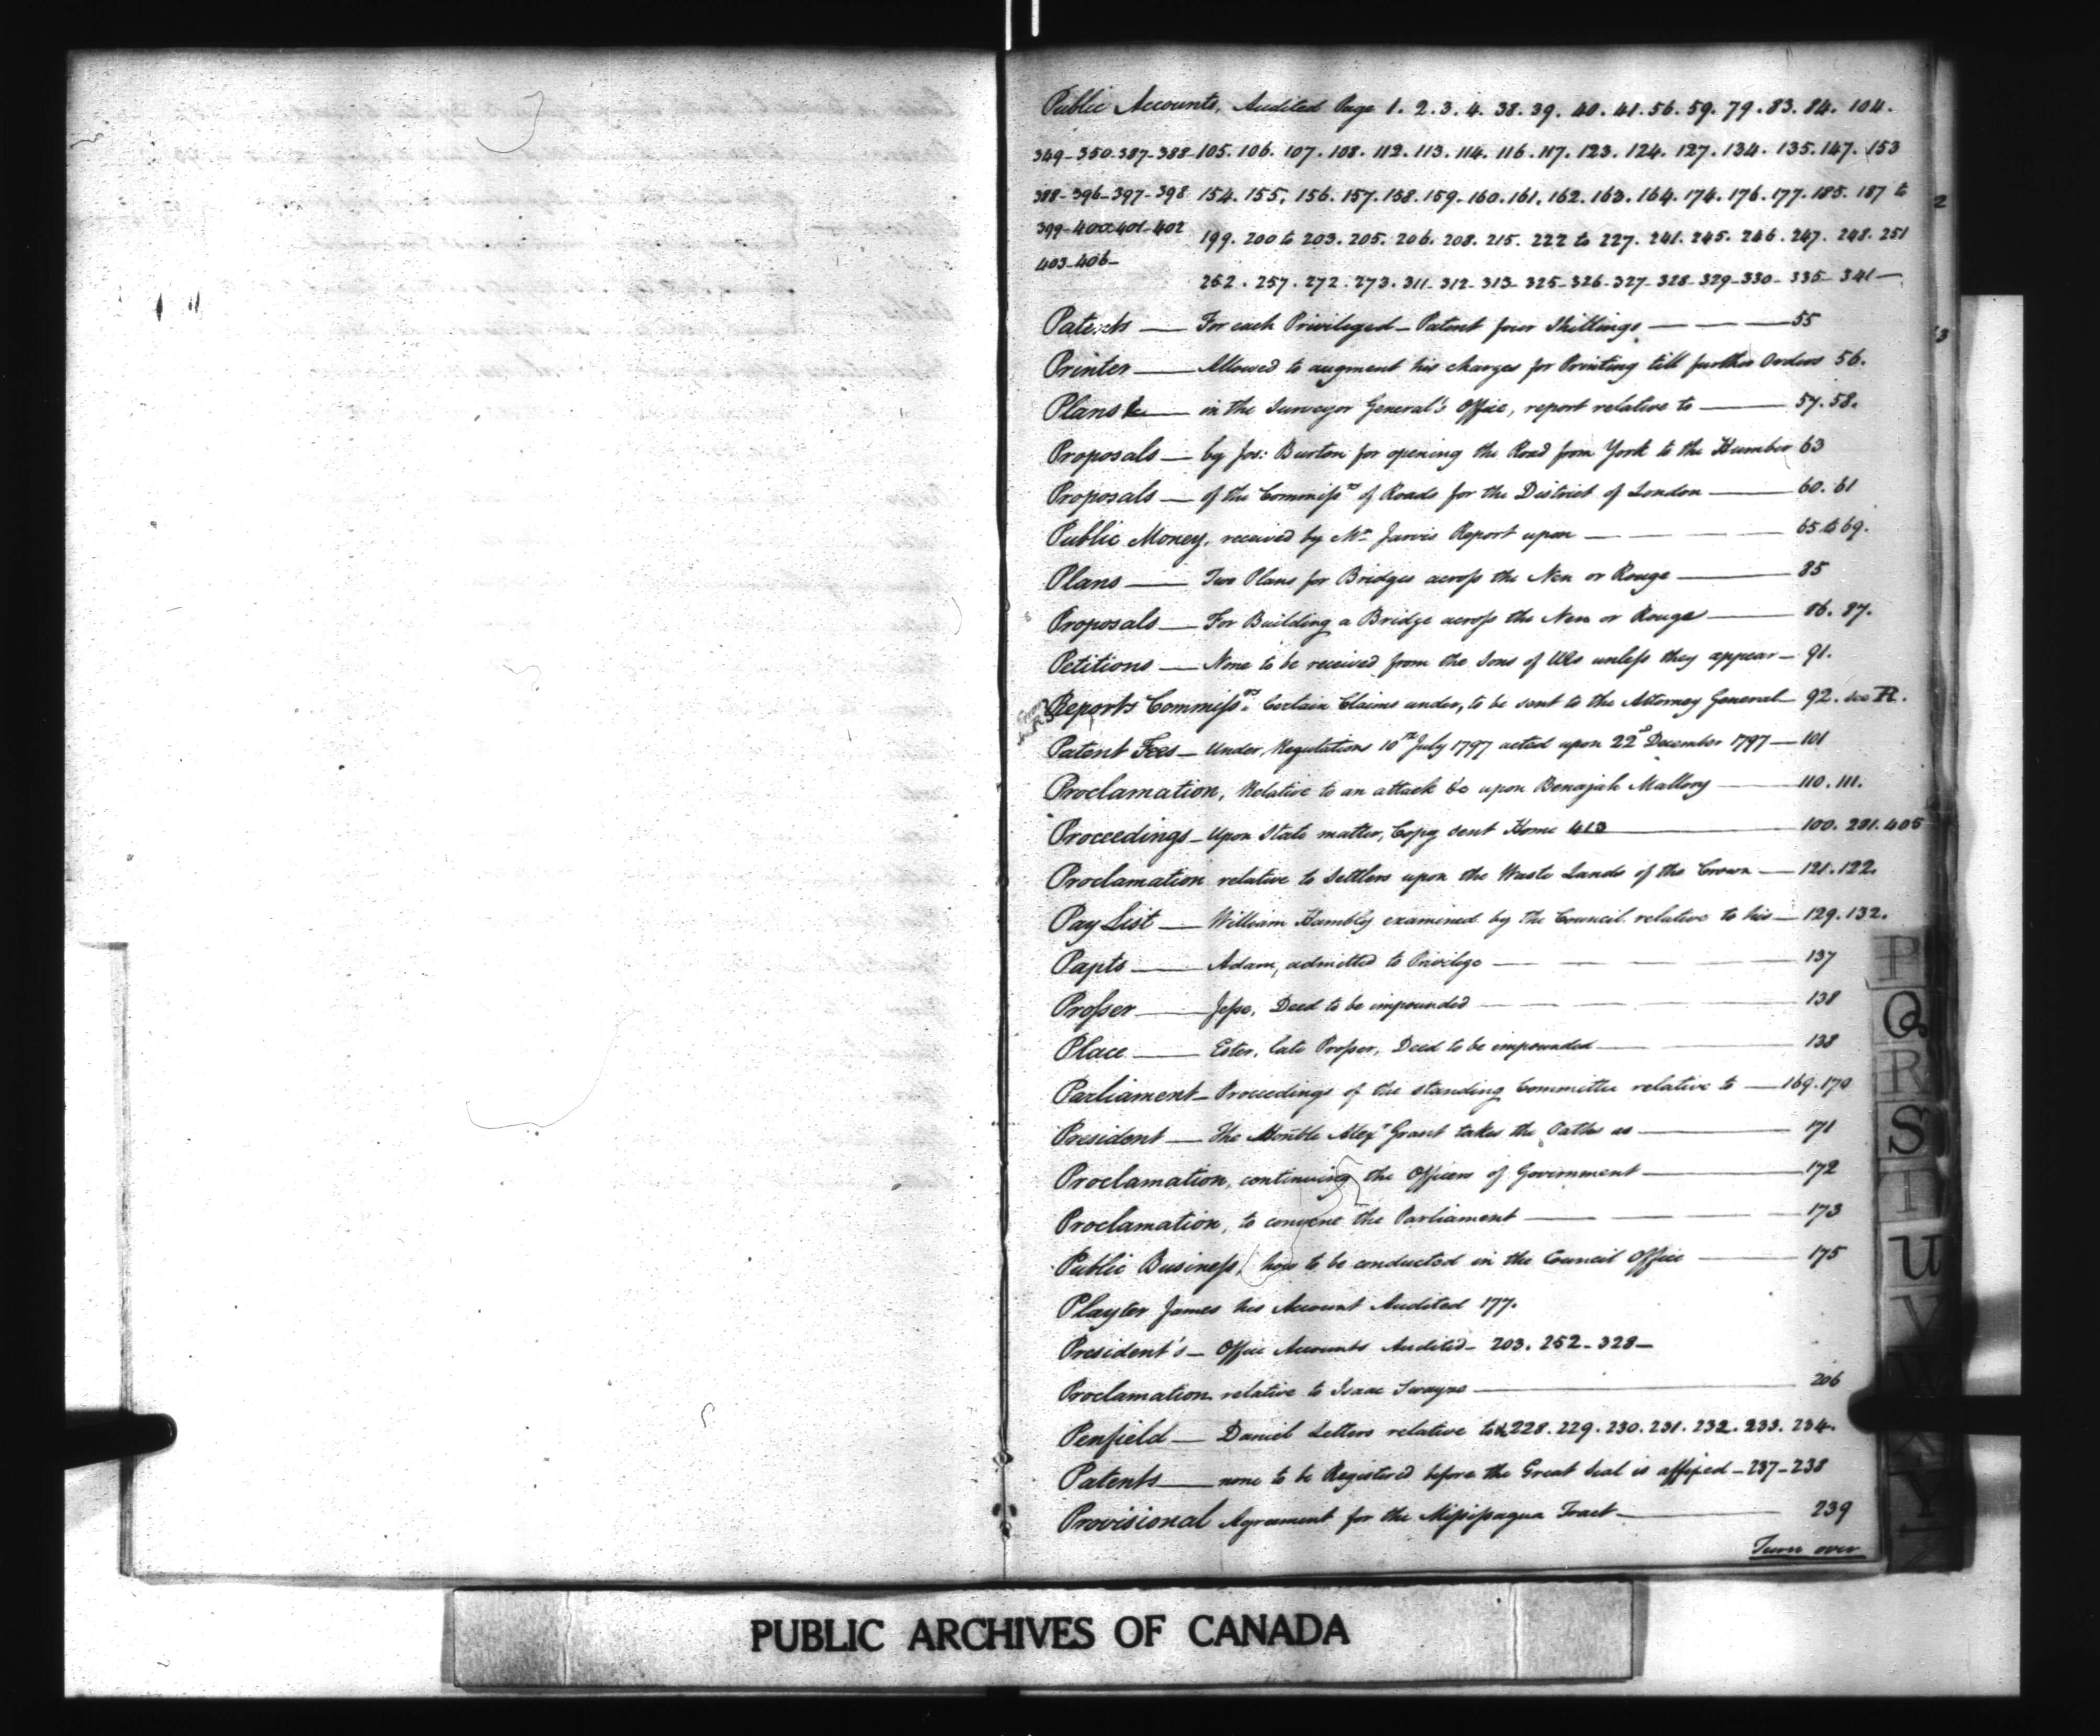 Public Accounts, Audited Page 1. 2. 3. 4. 38. 39. 40. 41. 56. 59. 79. 83. 84. 104.
349-350-387-388 105. 106. 107. 108. 112. 113. 114. 116. 117. 123. 124. 127. 134. 135. 147. 153
388-396-397-398 154. 155, 156. 157. 158. 159. 160. 161. 162. 163. 164. 174. 176. 177. 185. 187 to
399-400-401-402 199. 200 to 203. 205. 206. 208. 215. 222 to 227. 241. 245. 246. 247. 248. 251
403-406-
252. 257. 272. 273. 311- 312- 313- 325- 326- 327- 328- 329- 330- 335- 341-
Patents — For each Privileged Patent four Shillings — 55
Printer — Allowed to augment his charges for Printing till further Orders 56.
Plans &c — in the Surveyor General's Office, report relative to — 57. 58.
Proposals — by Jos: Burton for opening the Road from York to the Humber 63
Proposals — of the Commissrs of Roads for the District of London — 60. 61
Public Money, received by Mr Jarvis Report upon — 65 to 69.
Plans — Two Plans for Bridges across the Nen or Rouge — 85
Proposals — For Building a Bridge across the Nen or Rouge — 86. 87.
Petitions — None to be received from the Sons of UEs unless they appear — 91.
Reports Commissrs. Certain Claims under, to be sent to the Attorney General — 92. see R.
Patent Fees — Under Regulations 10th July 1797 acted upon 22d December 1797 — 101
Proclamation, Relative to an attack &c upon Benajah Mallory — 110. 111.
Proceedings — Upon State matter, Copy sent Home 413 — 100. 231. 405
Proclamation relative to Settlers upon the Waste Lands of the Crown — 121. 122.
Pay List — William Hambly examined by the Council relative to his — 129. 132.
Papts — Adam, admitted to Privilege — 137
Prosser — Jesse, Deed to be impounded — 138
Place — Ester, late Prosser, Deed to be impounded — 138
Parliament — Proceedings of the standing Committee relative to — 169. 170
President — The Honble Alexr Grant takes the Oaths as — 171
Proclamation, continuing the Officers of Government — 172
Proclamation, to convene the Parliament — 173
Public Business, how to be conducted in the Council Office — 175
Playter James his Account Audited 177.
President's — Office Accounts Audited — 203. 252 - 328 —
Proclamation relative to Isaac Swayze — 206
Penfield — Daniel Letters relative to 228. 229. 230. 231. 232. 233. 234.
Patents — none to be Registered before the Great Seal is affixed — 237 - 238
Provisional Agreement for the Missisagua Tract — 239
Turn over
P
Q
R
S
T
U
V
W
X
Y
PUBLIC ARCHIVES OF CANADA